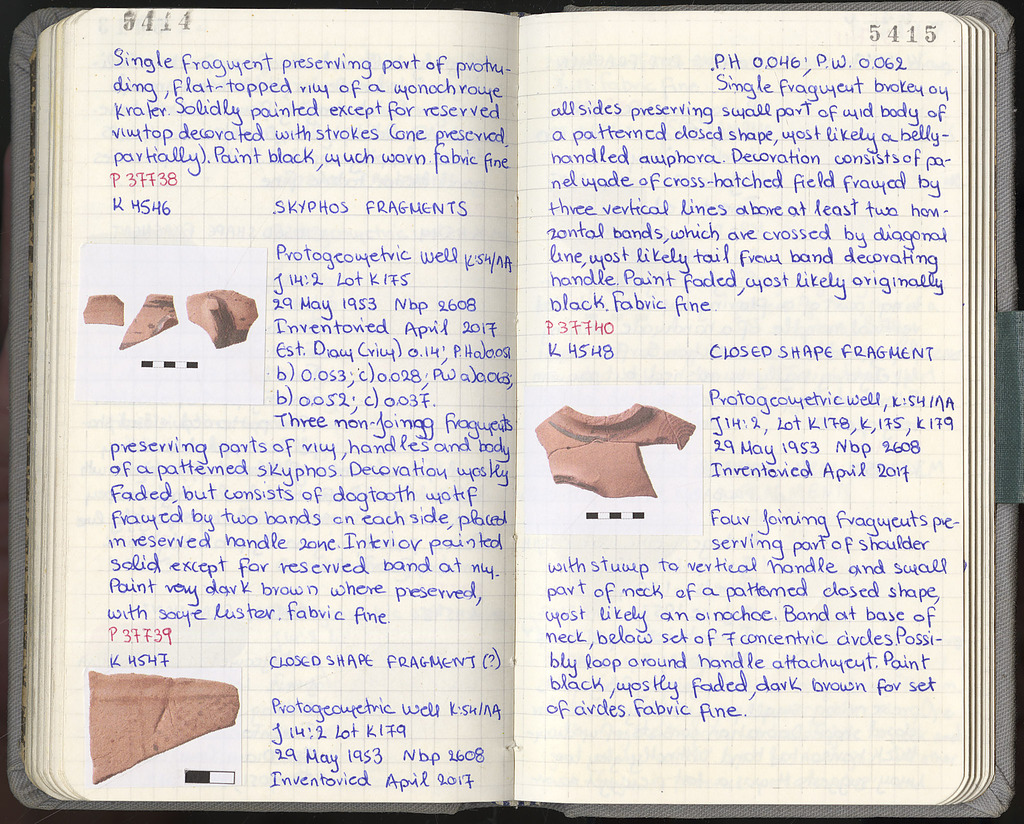 5414
Single fragment preserving part of protru-
ding, flat-topped rim of a monochrome
krater. Solidly painted except for reserved
rimtop decorated with strokes (one preserved
partially). Paint black, much worn. Fabric fine
P 37738
K 4546 SKYPHOS FRAGMENTS
Protogeometric well K:54/ΛΑ
J 14:2 Lot K175
29 May 1953 Nbp 2608
Inventoried April 2017
Est. Diam (rim) 0.14; P.H a)0.051
b) 0.053; c) 0.028; PW a)0.063;
b) 0.052; c) 0.037.
Three non-joinigg fragments
preserving parts of rim, handles and body
of a patterned skyphos. Decoration mostly
faded, but consists of dogtooth motif
framed by two bands on each side, placed
in reserved handle zone. Interior painted
solid except for reserved band at rim.
Paint very dark brown where preserved,
with some luster. Fabric fine.
P 37739
K 4547 CLOSED SHAPE FRAGMENT (?)
Protogeometric well K:54/ΛΑ
J 14:2 Lot K179
29 May 1953 Nbp 2608
Inventoried April 2017
5415
P.H 0.046; P.W. 0.062
Single fragment broken on
all sides preserving small part of mid body of
a patterned closed shape, most likely a belly-
handled amphora. Decoration consists of pa-
nel made of cross-hatched field framed by
three vertical lines above at least two hori-
zontal bands, which are crossed by diagonal
line, most likely tail from band decorating
handle. Paint faded, most likely originally
black. Fabric fine.
P 37740
K 4548 CLOSED SHAPE FRAGMENT
Protogeometric well, K:54/ΛΑ
J14:2, Lot K178, K,175, K179
29 May 1953 Nbp 2608
Inventoried April 2017
Four joining fragments pre-
serving part of shoulder
with stump to vertical handle and small
part of neck of a patterned closed shape,
most likely an oinochoe. Band at base of
neck, below set of 7 concentric circles. Possi-
bly loop around handle attachment. Paint
black, mostly faded, dark brown for set
of circles. Fabric fine.